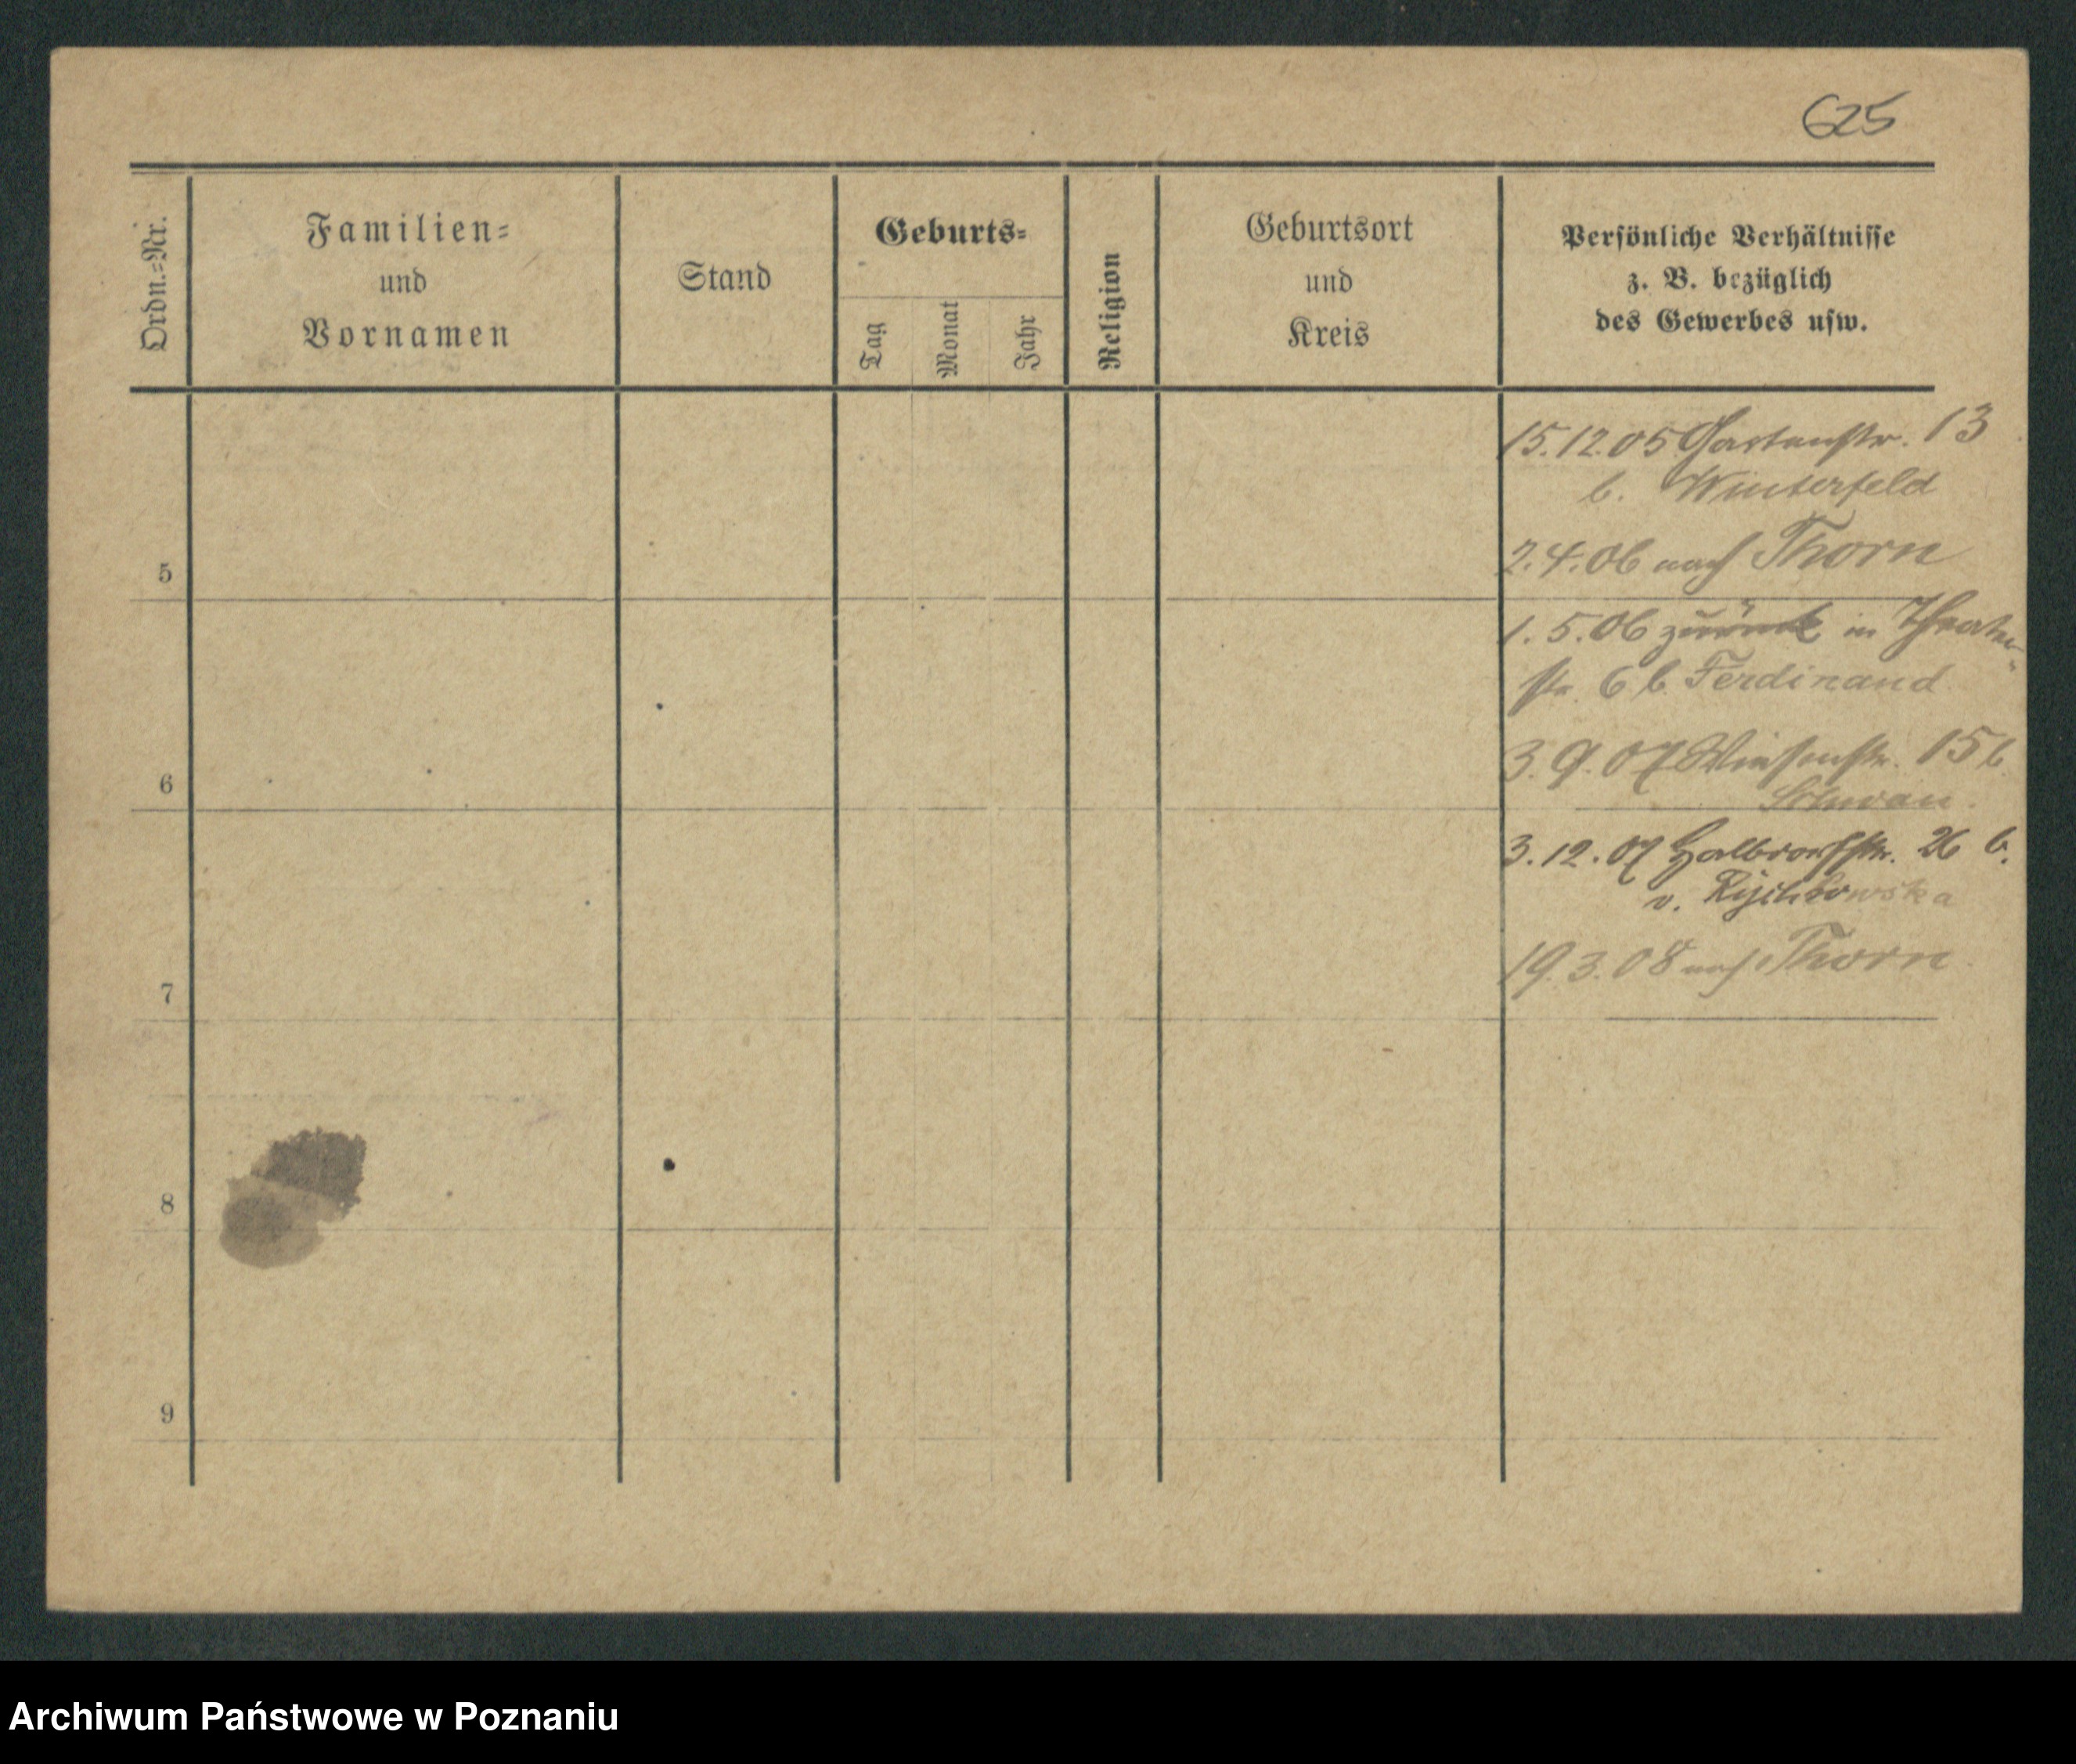 625
Ordn.=Nr.
Familien=
und
Vornamen
Stand
Geburts=
Tag
Monat
Jahr
Religion
Geburtsort
und
Kreis
Persönliche Verhältnisse
z. B. bezüglich
des Gewerbes usw.
15.12.05 Gartenstr. 13
b. Winterfeld
2.4.06 nach Thorn
5
1.5.06 zurück in Theater-
str. 6 b. Ferdinand
3.9.07 Wiesenstr. 15 b.
6
Schwan.
3.12.07 Halbdorfstr. 26 b.
v.
19.3.08 nach Thorn
7
8
9
Archiwum Państwowe w Poznaniu